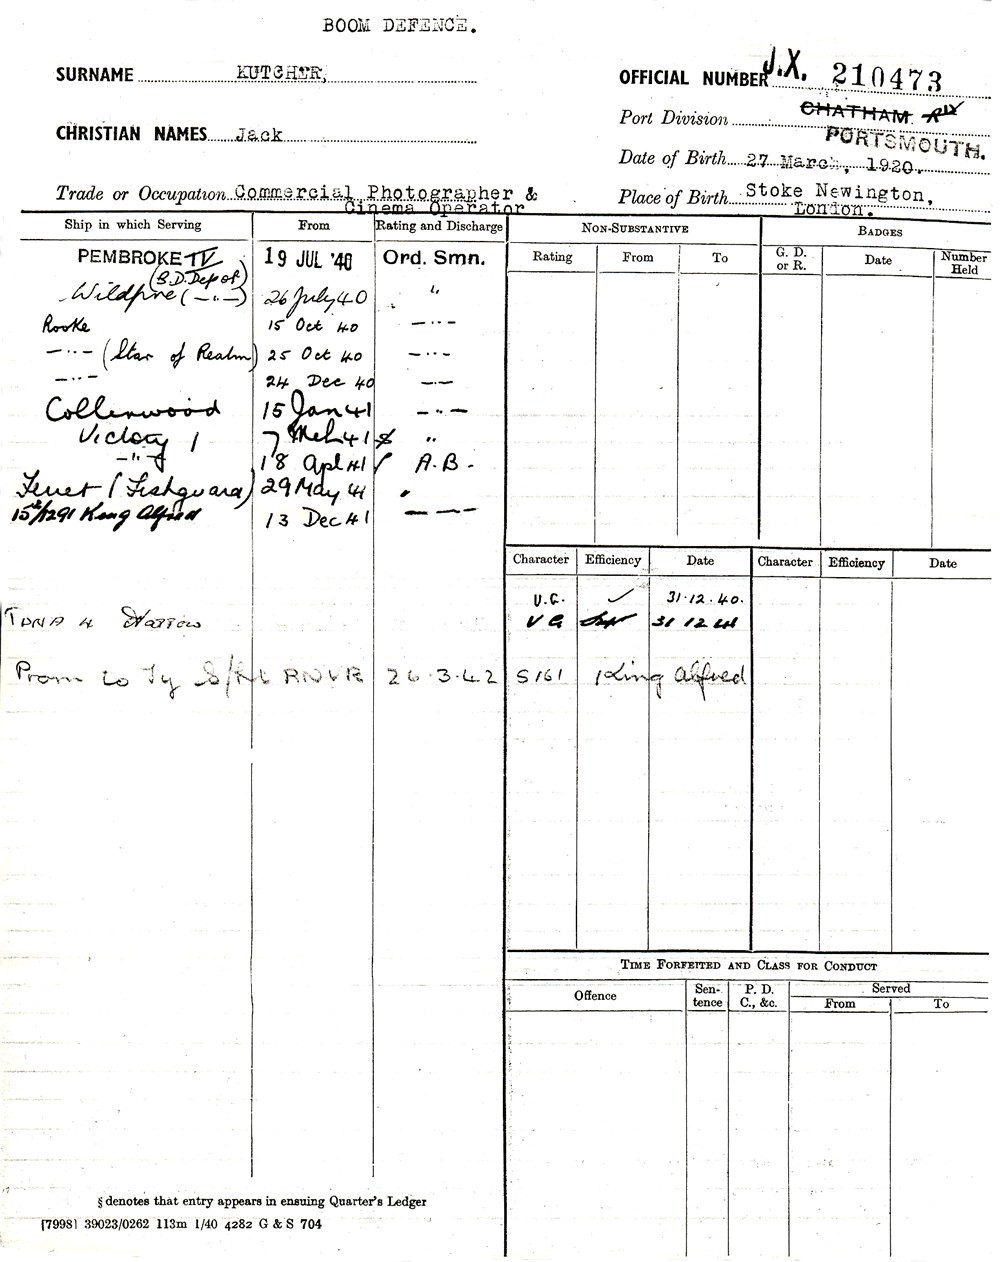 BOOM DEFENCE.
SURNAME KUTCHER,
OFFICIAL NUMBER J.X. 210473
Port Division CHATHAM
PORTSMOUTH.
CHRISTIAN NAMES Jack
Date of Birth 27 March, 1920.
Trade or Occupation Commercial Photographer &
Cinema Operator
Place of Birth Stoke Newington,
London.
Ship in which Serving From Rating and Discharge
PEMBROKE IV 19 JUL '40 Ord. Smn.
(B.D. Depot)
Wildfire ( — " — ) 26 July 40 "
Rooke 15 Oct 40 — " —
— " — (Star of Realm) 25 Oct 40 — " —
— " — 24 Dec 40 — " —
Collenwood 15 Jan 41 — " —
Victory I 7 Mch 41 "
— " — 18 Apl 41 A.B.
(Fishguard) 29 May 41 "
King Alfred 13 Dec 41 — " —
Prom to Ty S/Lt RNVR 26.3.42 S161 King Alfred
NON-SUBSTANTIVE
Rating From To
BADGES
G. D. or R. Date Number Held
Character Efficiency Date Character Efficiency Date
V.G. ✓ 31.12.40.
VG 31 12 41
TIME FORFEITED AND CLASS FOR CONDUCT
Offence Sen-tence P. D. C., &c. Served
From To
§ denotes that entry appears in ensuing Quarter's Ledger
[7998] 39023/0262 113m 1/40 4282 G & S 704